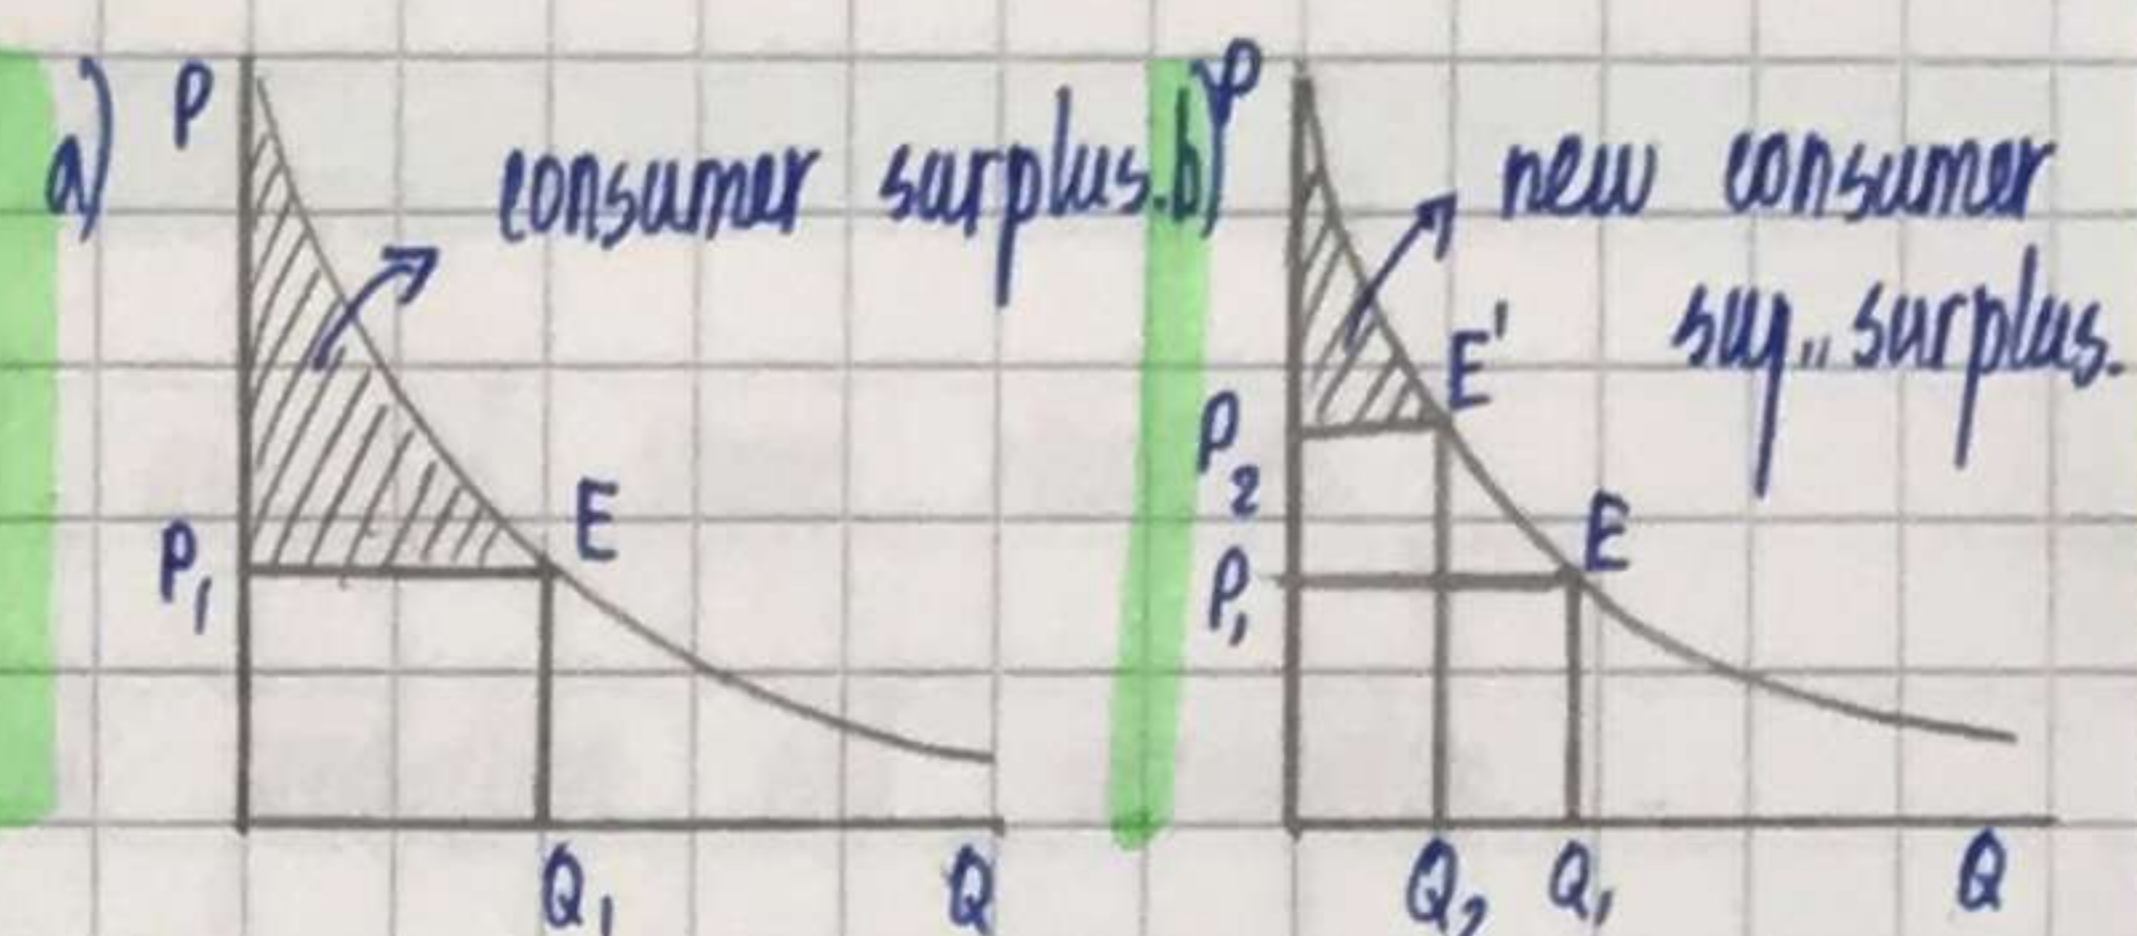 a) P
consumer surplus.
P₁
E
Q₁
Q
b) P
new consumer
sup.. surplus.
E'
P₂
E
P₁
Q₂
Q₁
Q